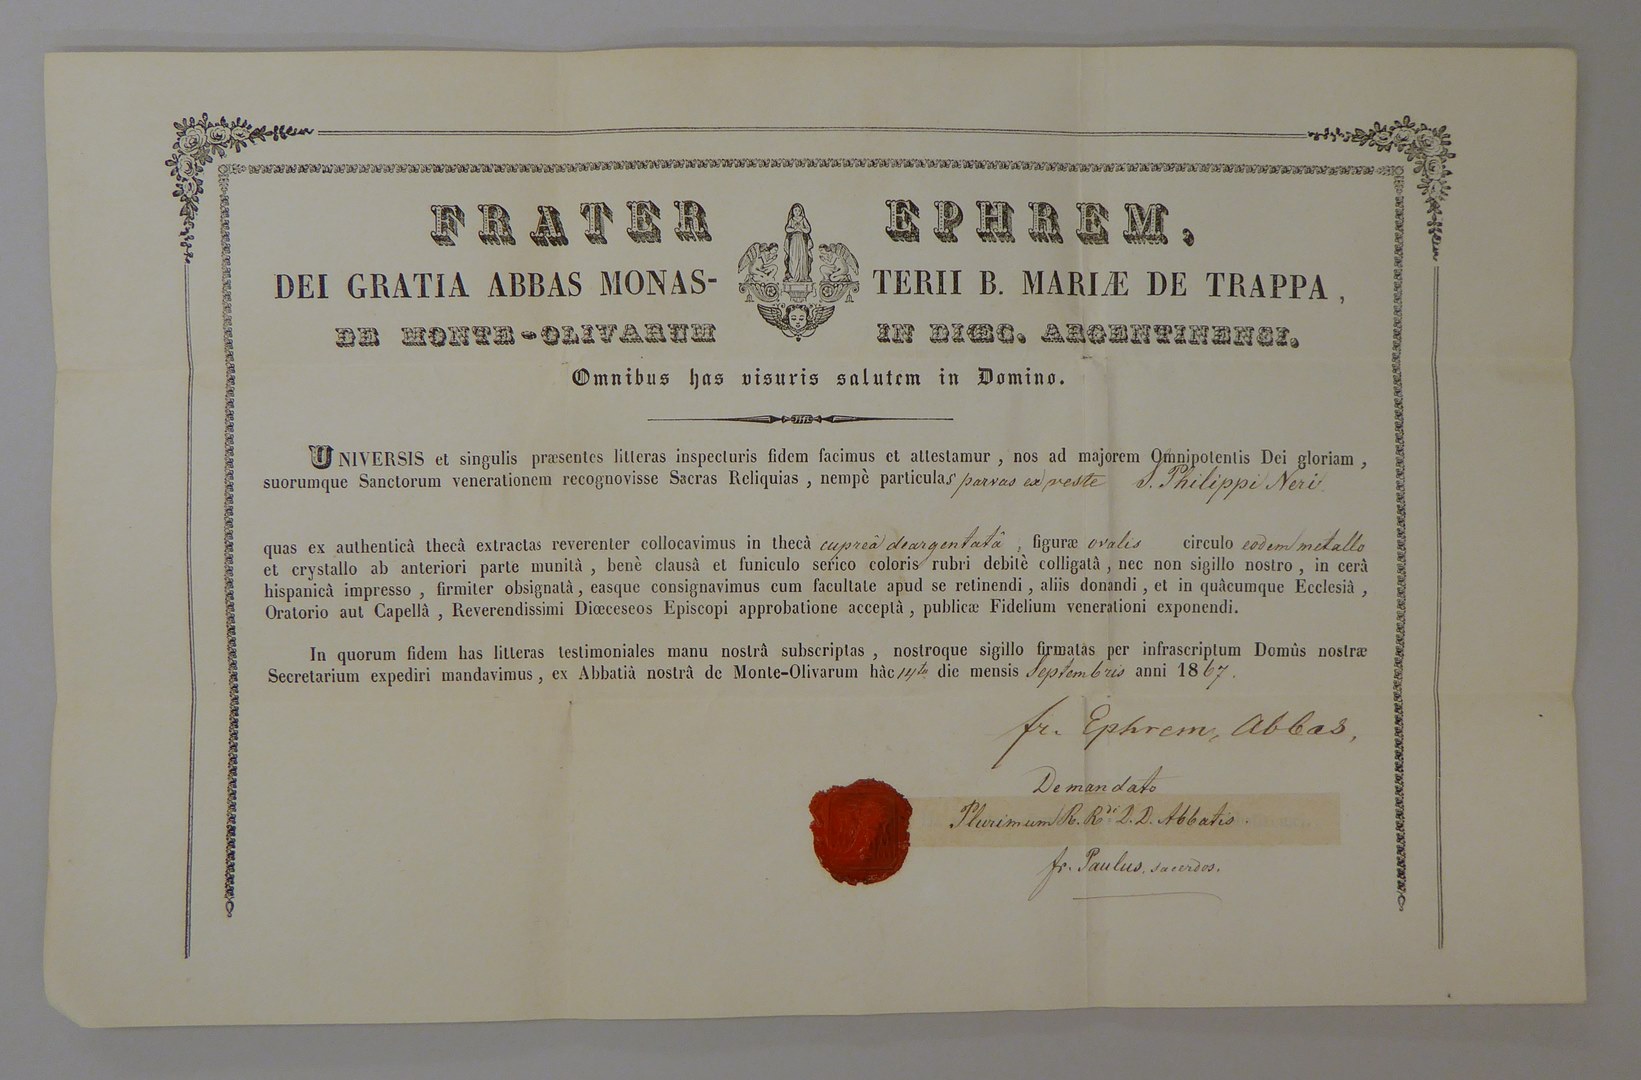 FRATER EPHREM,
DEI GRATIA ABBAS MONAS- TERII B. MARIÆ DE TRAPPA,
DE MONTE-OLIVARUM IN DIŒC. ARGENTINENSI.
Omnibus has visuris salutem in Domino.
UNIVERSIS et singulis præsentes litteras inspecturis fidem facimus et attestamur, nos ad majorem Omnipotentis Dei gloriam,
suorumque Sanctorum venerationem recognovisse Sacras Reliquias, nempè particulas parvas ex veste S. Philippi Neri
quas ex authenticâ thecâ extractas reverenter collocavimus in thecâ cupreâ deargentatâ, figuræ ovalis circulo eodem metallo
et crystallo ab anteriori parte munitâ, benè clausâ et funiculo serico coloris rubri debitè colligatâ, nec non sigillo nostro, in cerâ
hispanicâ impresso, firmiter obsignatâ, easque consignavimus cum facultate apud se retinendi, aliis donandi, et in quâcumque Ecclesiâ,
Oratorio aut Capellâ, Reverendissimi Diœceseos Episcopi approbatione acceptâ, publicæ Fidelium venerationi exponendi.
In quorum fidem has litteras testimoniales manu nostrâ subscriptas, nostroque sigillo firmatas per infrascriptum Domûs nostræ
Secretarium expediri mandavimus, ex Abbatiâ nostrâ de Monte-Olivarum hâc 14ta die mensis Septembris anni 1867.
fr. Ephrem, Abbas,
De mandato
Plurimum R. Rdi D. D. Abbatis.
fr. Paulus, sacerdos.